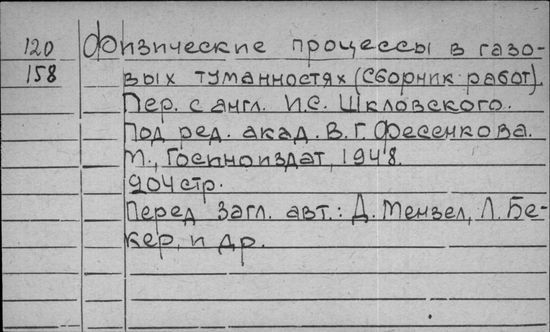 120 Физические процессы в газо-
158 вых туманностях (Сборник работ).
Пер. с англ. И.С. Шкловского.
Под ред. акад. В.Г. Фесенкова.
М., Гостиоиздат, 1948.
204 стр.
Перед загл. авт.: Д. Мензел, Л. Бе-
кер, и др.